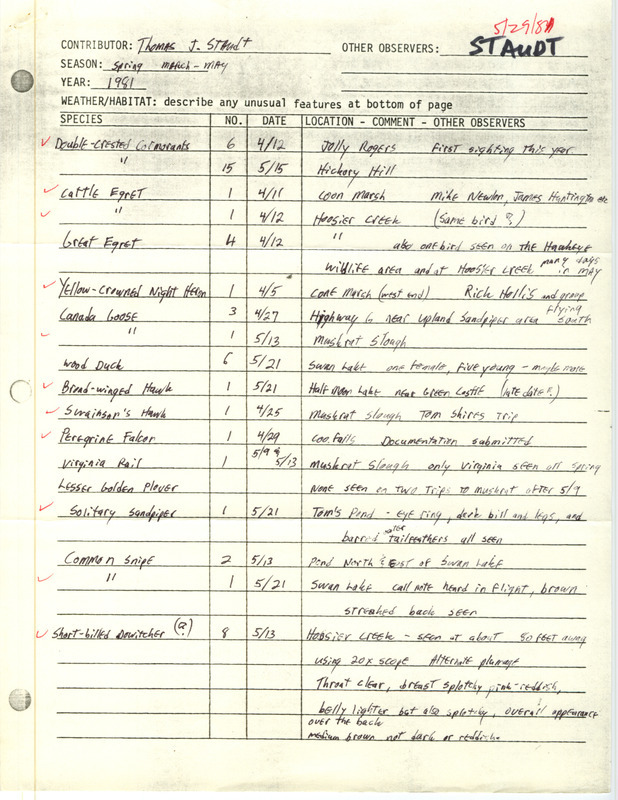 5/29/81
CONTRIBUTOR: Thomas J. Staudt OTHER OBSERVERS: STAUDT
SEASON: Spring March-May
YEAR: 1981
WEATHER/HABITAT: describe any unusual features at bottom of page
SPECIES NO. DATE LOCATION - COMMENT - OTHER OBSERVERS
Double-crested Cormorants 6 4/12 Jolly Rogers First sighting this year
" 15 5/15 Hickory Hill
Cattle Egret 1 4/11 Coon Marsh Mike Newlon, James Huntington etc
" 1 4/12 Hoosier Creek (Same bird?)
Great Egret 4 4/12 " also one bird seen on the Hawkeye
Wildlife area and at Hoosier Creek many days in May
Yellow-crowned Night Heron 1 4/5 Cone March (west end) Rick Hollis and group
Canada Goose 3 4/27 Highway 6 near Upland Sandpiper area flying south
" 1 5/13 Muskrat Slough
Wood Duck 6 5/21 Swan Lake one female, five young - maybe more
Broad-winged Hawk 1 5/21 Half Moon Lake near Green Castle (late date?)
Swainson's Hawk 1 4/25 Muskrat Slough Tom Shires Trip
Peregrine Falcon 1 4/29 Coo. Falls Documentation submitted
Virginia Rail 1 5/9 & 5/13 Muskrat Slough only Virginia seen all spring
Lesser Golden Plover None seen on Two Trips to Muskrat after 5/9
Solitary Sandpiper 1 5/21 Tom's Pond - eye ring, dark bill and legs, and
barred outer tailfeathers all seen
Common Snipe 2 5/13 Pond North & East of Swan Lake
" 1 5/21 Swan Lake call note heard in flight, brown
streaked back seen
Short-billed Dowitcher (?) 8 5/13 Hoosier Creek - seen at about 50 feet away
using 20x scope Alternate plumage
Throat clear, breast splotchy pink-reddish,
belly lighter but also splotchy, overall appearance
over the back
medium brown not dark or reddish